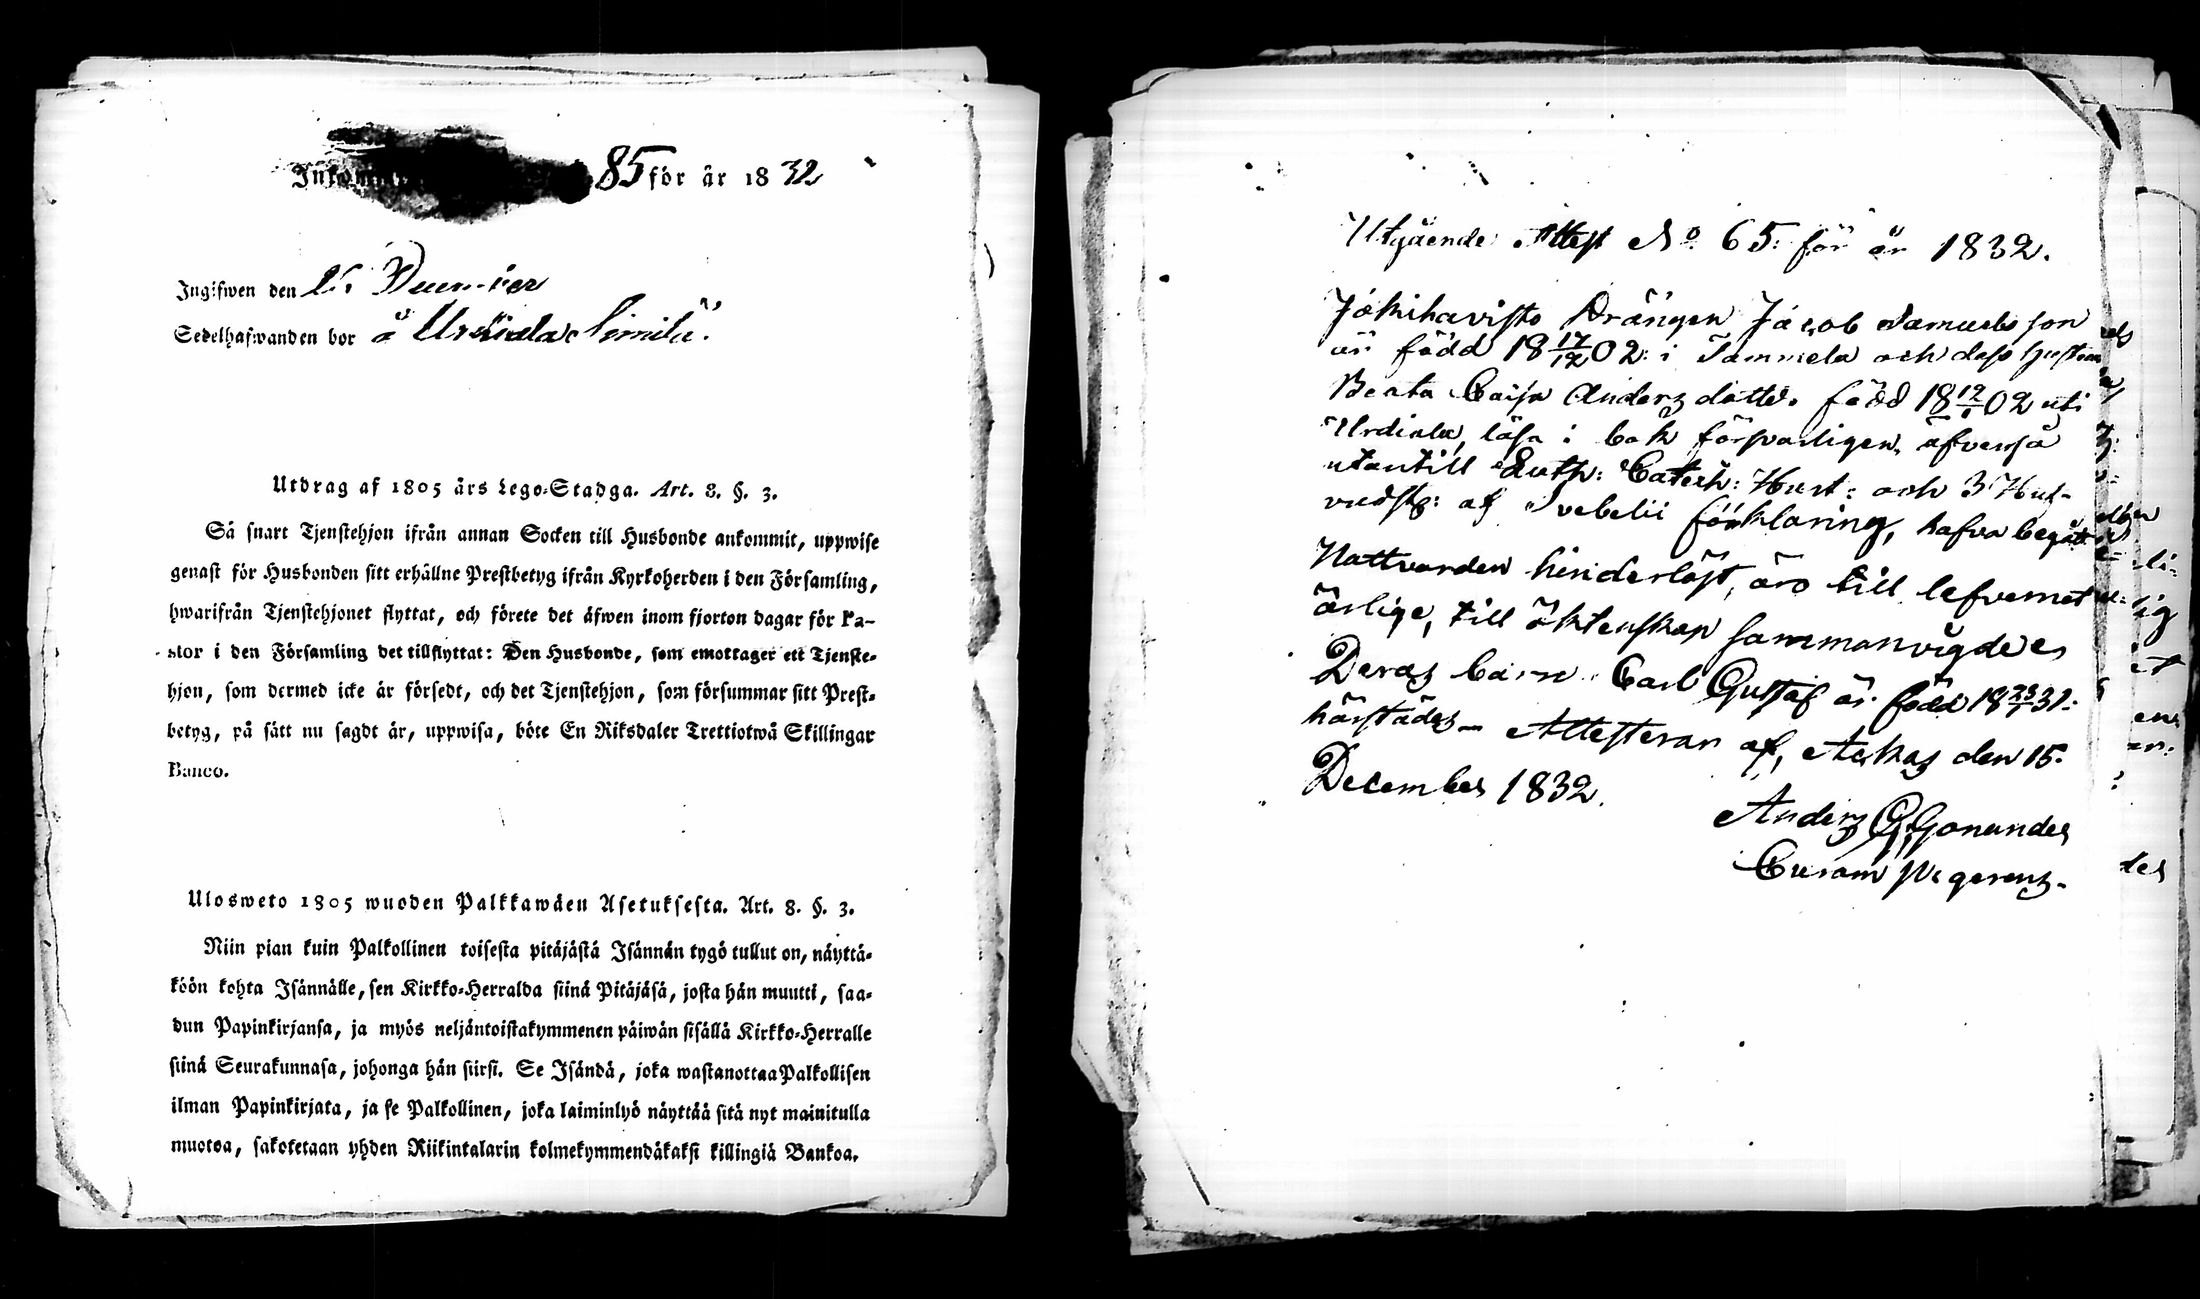 85 för år 1832
Ingifwen den
Sedelhafwanden bor å
Utdrag af 1805 års Lego-Stadga. Art. 8. §. 3.
Så snart Tjenstehjon ifrån annan Socken till Husbonde ankommit, uppwise
genast för Husbonden sitt erhållne Prestbetyg ifrån Kyrkoherden i den Församling,
hwarifrån Tjenstehjonet flyttat, och förete det äfwen inom fjorton dagar för Pa-
stor i den Församling det tillflyttat: Den Husbonde, som emottager ett Tjenste-
hjon, som dermed icke är försedt, och det Tjenstehjon, som försummar sitt Prest-
betyg, på sätt nu sagdt är, uppwisa, böte En Riksdaler Trettiotwå Skillingar
Banco.
Ulosweto 1805 wuoden Palkkawäen Asetuksesta. Art. 8. §. 3.
Niin pian kuin Palkollinen toisesta pitäjästä Isännän tygö tullut on, näyttä-
köön kohta Isännälle, sen Kirkko-Herralda siinä Pitäjäsä, josta hän muutti, saa-
dun Papinkirjansa, ja myös neljäntoistakymmenen päiwän sisällä Kirkko-Herralle
siinä Seurakunnasa, johonga hän siirsi. Se Isändä, joka wastanottaa Palkollisen
ilman Papinkirjata, ja se Palkollinen, joka laiminlyö näyttää sitä nyt mainitulla
muotoa, sakotetaan yhden Riikintalarin kolmekymmendäkaksi killingiä Bankoa.
Utgående Attest No 65: för år 1832.
Jokihavisto Drängen Jacob Samuelsson
är född 18 17/12 02: i Tammela och dess hustru
Beata Caisa Andersdotter född 18 12/1 02 uti
Urdiala, läsa i bok försvarligen, äfvenså
utantill Luth: Catech: Hust: och 3 Huf-
vudst: af Svebelii förklaring, hafva begått
Nattvarden hinderlöst, äro till lefvernet
ärlige, till äktenskap sammanvigde.
Deras barn Carl Gustaf är född 18 31:
härstädes - Attesterar af, Ackas den 15.
December 1832.
Anders G.
Curam gerens.